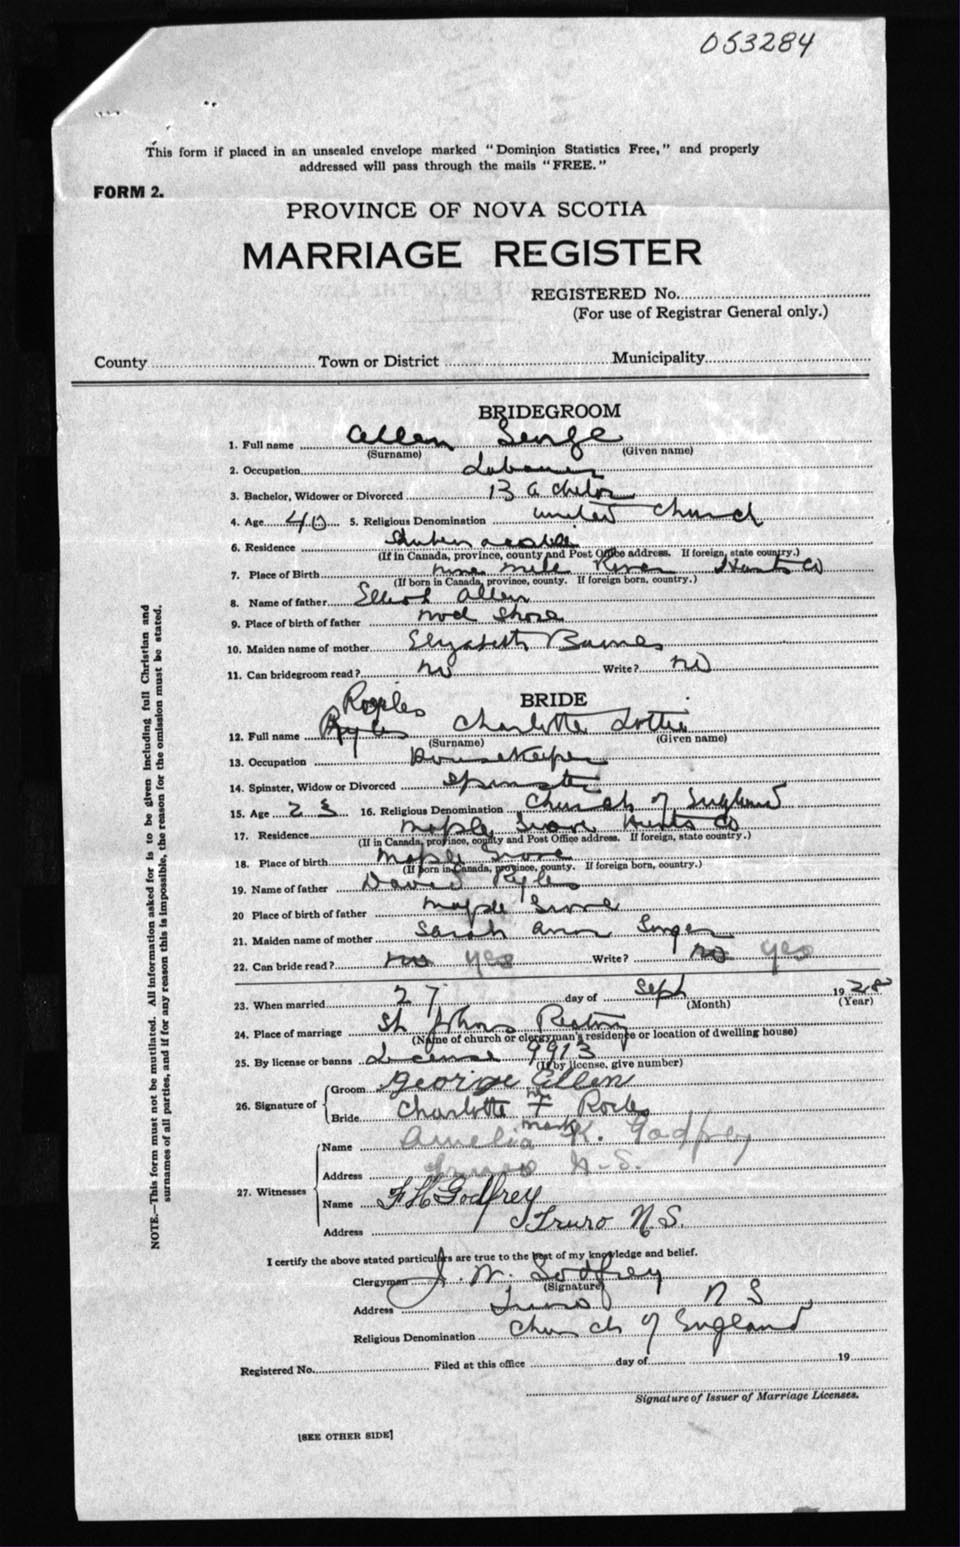 053284
This form if placed in an unsealed envelope marked "Dominion Statistics Free," and properly
addressed will pass through the mails "FREE."
FORM 2.
PROVINCE OF NOVA SCOTIA
MARRIAGE REGISTER
REGISTERED No.
(For use of Registrar General only.)
County Town or District Municipality
BRIDEGROOM
1. Full name Allen George
(Surname) (Given name)
2. Occupation Labourer
3. Bachelor, Widower or Divorced Bachelor
4. Age 40 5. Religious Denomination United Church
6. Residence Shubenacadie
(If in Canada, province, county and Post Office address. If foreign, state country.)
7. Place of Birth Nine Mile River Hants Co
(If born in Canada, province, county. If foreign born, country.)
8. Name of father Elliot Allen
9. Place of birth of father Nod Shore
10. Maiden name of mother Elizabeth Barnes
11. Can bridegroom read? No Write? No
BRIDE
Royles
12. Full name Ryles Charlotte Lottie
(Surname) (Given name)
13. Occupation Housekeeper
14. Spinster, Widow or Divorced Spinster
15. Age 23 16. Religious Denomination Church of England
17. Residence Maple Grove Hants Co
(If in Canada, province, county and Post Office address. If foreign, state country.)
18. Place of birth Maple Grove
(If born in Canada, province, county. If foreign born, country.)
19. Name of father David Ryles
20 Place of birth of father Maple Grove
21. Maiden name of mother Sarah Ann Singer
22. Can bride read? no yes Write? no yes
23. When married 27 day of Sept 1928
(Month) (Year)
24. Place of marriage St Johns Rectory
(Name of church or clergyman's residence or location of dwelling house)
25. By license or banns License 9913
(If by license, give number)
26. Signature of Groom George Ellen
Bride Charlotte Royles
mark
27. Witnesses Name Amelia K. Godfrey
Address Truro N.S.
Name F H Godfrey
Address Truro N.S.
I certify the above stated particulars are true to the best of my knowledge and belief.
Clergyman J. W. Godfrey
(Signature)
Address Truro N S
Religious Denomination Church of England
Registered No. Filed at this office day of 19
Signature of Issuer of Marriage Licenses.
[SEE OTHER SIDE]
NOTE.—This form must not be mutilated. All information asked for is to be given including full Christian and
surnames of all parties, and if for any reason this is impossible, the reason for the omission must be stated.